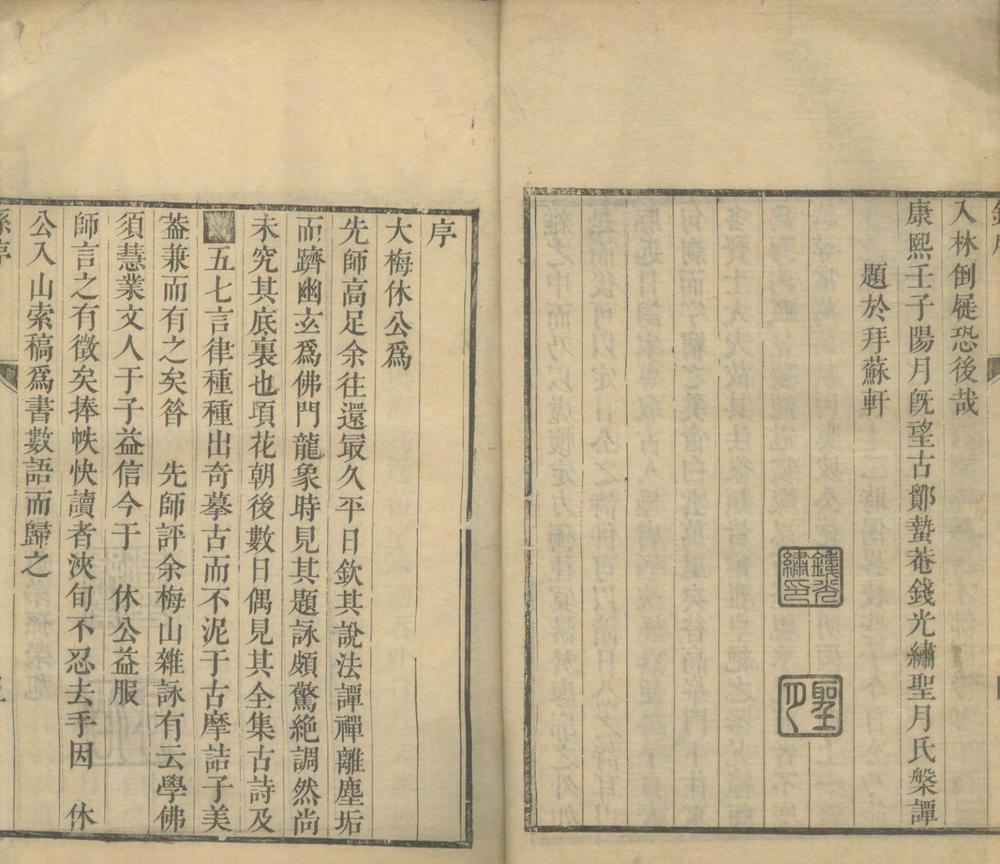 入林倒屣恐後哉
康熙壬子陽月旣望古鄮蟄菴錢光繡聖月氏槃譚
題於拜蘇軒
錢光繡印
聖月
序
大梅休公爲
先師高足余往還㝡久平日欽其說法譚禪離塵垢
而躋幽玄爲佛門龍象時見其題詠頗驚絶調然尚
未究其底裏也項花朝後數日偶見其全集古詩及
五七言律種種出奇摹古而不泥于古摩詰子美
葢兼而有之矣昝 先師評余梅山雜詠有云學佛
須慧業文人于子益信今于 休公益服
師言之有徵矣捧帙快讀者浹旬不忍去手因 休
公入山索稿爲書數語而歸之